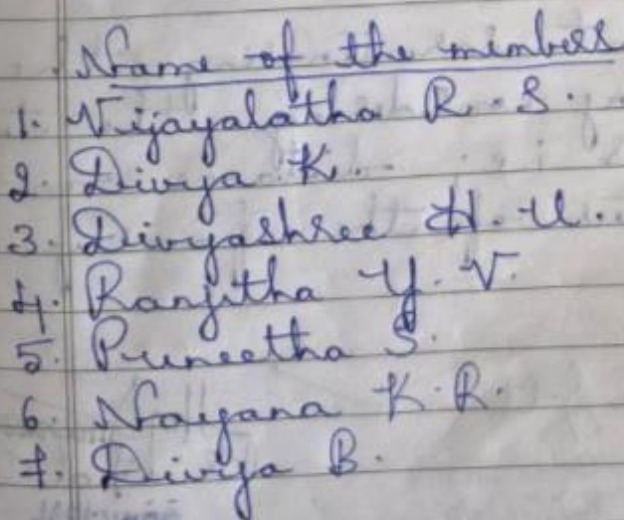 Name of the members
1. Vijayalatha R. S.
2. Divya K.
3. Divyashree H. U.
4. Ranjitha Y. V.
5. Puneetha S.
6. Nayana K. R.
7. Divya B.